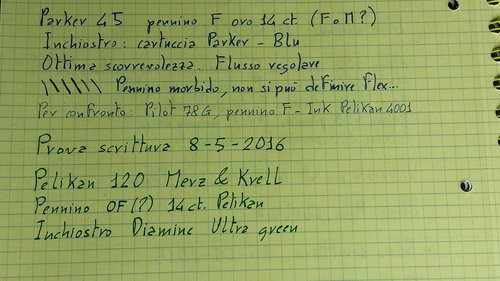 Parker 45 pennino F oro 14 ct. (F o M?)
Inchiostro: cartuccia Parker - Blu
Ottima scorrevolezza. Flusso regolare
\\\\\\ Pennino morbido, non si può definire flex...
Per confronto: Pilot 78G, pennino F - Ink Pelikan 4001
Prova scrittura 8-5-2016
Pelikan 120 Merz & Krell
Pennino OF(?) 14 ct. Pelikan
Inchiostro Diamine Ultra green